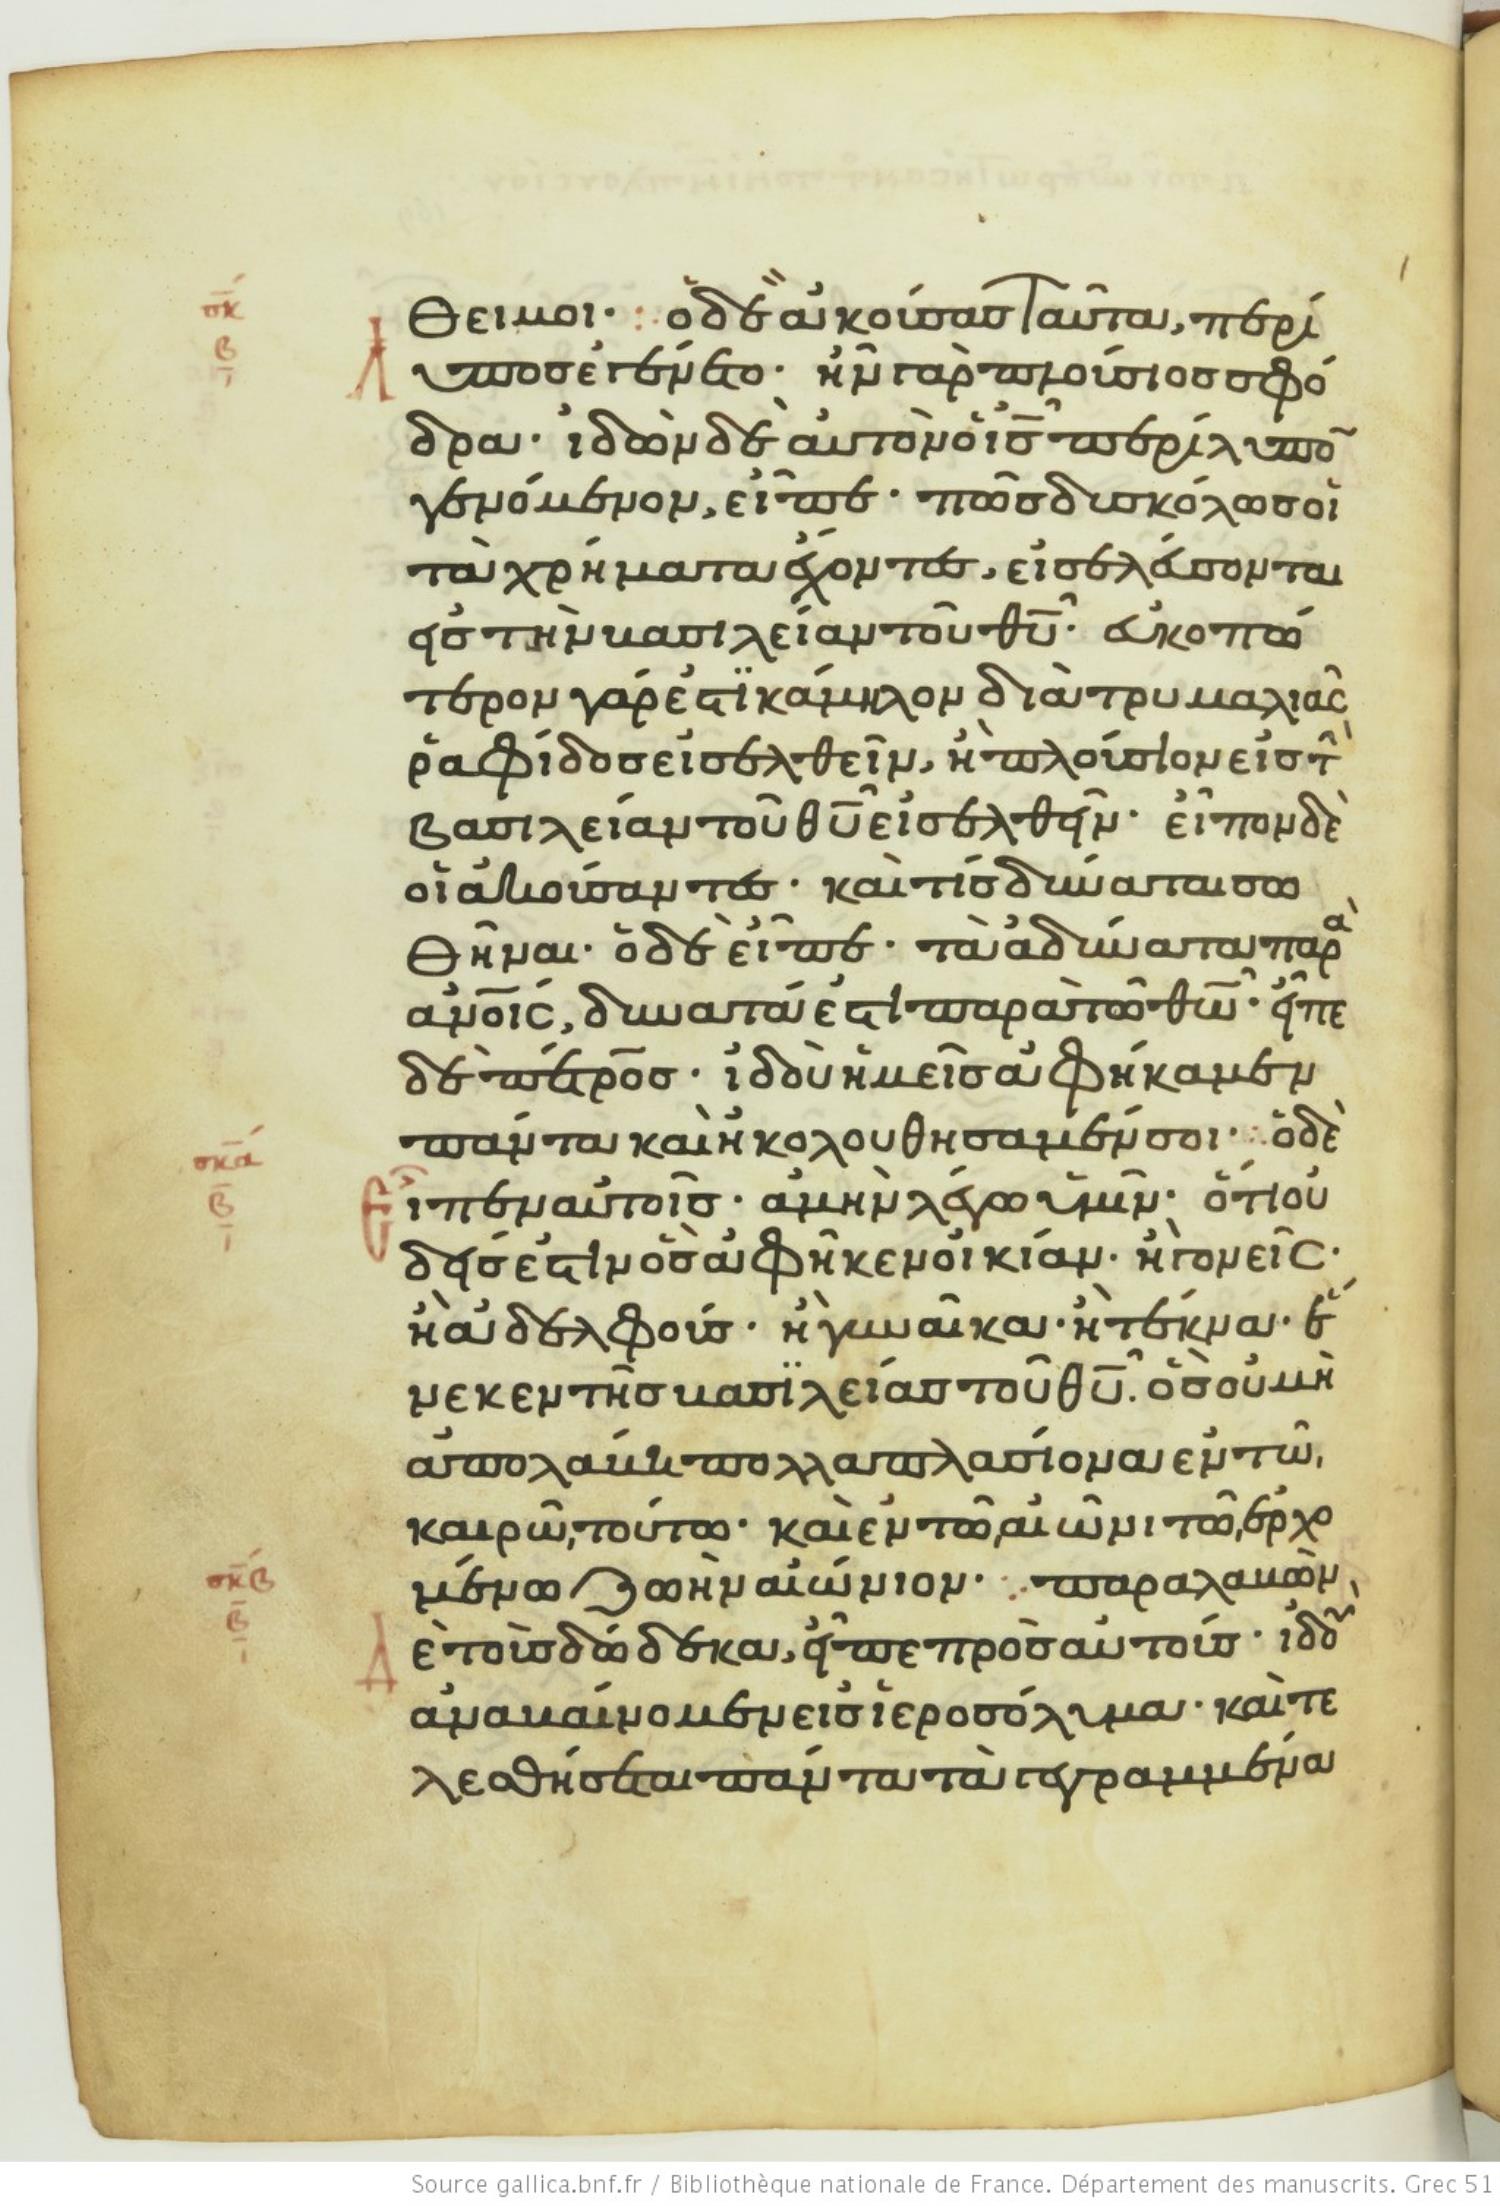 σκ
β
θει μοι· ὁ δὲ ἀκούσας ταῦτα, περί
λυπος ἐγένετο· ἦν γὰρ πλούσιος σφό
δρα· ἰδὼν δὲ αὐτὸν ὁ ις̅ περίλυπο
γενόμενον, εἶπε· πῶς δυσκόλως οἱ
τὰ χρήματα ἔχοντες, εἰσελεύσονται
εἰς τὴν βασιλείαν τοῦ θυ̅· εὐκοπώ
τερον γάρ ἐστϊ κάμηλον διὰ τρυμαλιᾶς
ῥαφίδος εἰσελθεῖν, ἢ πλούσιον εἰς τ
βασιλείαν τοῦ θυ̅ εἰσελθεῖν· εἶπον δὲ
οἱ ἀκούσαντες· καὶ τίς δύναται σω
θῆναι· ὁ δὲ εἶπε· τὰ ἀδύνατα παρὰ
ανοις̅, δυνατά ἐστι παρὰ τῶ θω̅· εἶπε
δὲ πέτρος· ἰδοὺ ἡμεῖς ἀφήκαμεν
πάντα καὶ ἠκολουθησαμέν σοι· ὁ δὲ
σκα
β
εἶπεν αὐτοῖς· ἀμὴν λέγω ὑμῖν· ὅτι οὐ
δείς ἐστιν ὃς ἀφῆκεν οἰκίαν· ἢ γονεῖς·
ἢ ἀδελφούς· ἢ γυναῖκα· ἢ τέκνα· ἕ
νεκεν τῆς βασϊλείας τοῦ θυ̅. ὃς οὐ μὴ
ἀπολάβη πολλαπλασίονα ἐν τῶ,
καιρῶ, τούτω· καὶ ἐν τῶ, αἰῶνι τῶ, ἐρχο
μένω ζωὴν αἰώνιον· παραλαβὼν
σκβ
β
δὲ τοὺς δώδεκα, εἶπε πρὸς αὐτούς· ἰδοὺ
ἀναβαίνομεν εἰς ἱεροσόλυμα· καὶ τε
λεσθήσεται πάντα τὰ γεγραμμένα
Source gallica.bnf.fr / Bibliothèque nationale de France. Département des manuscrits. Grec 51